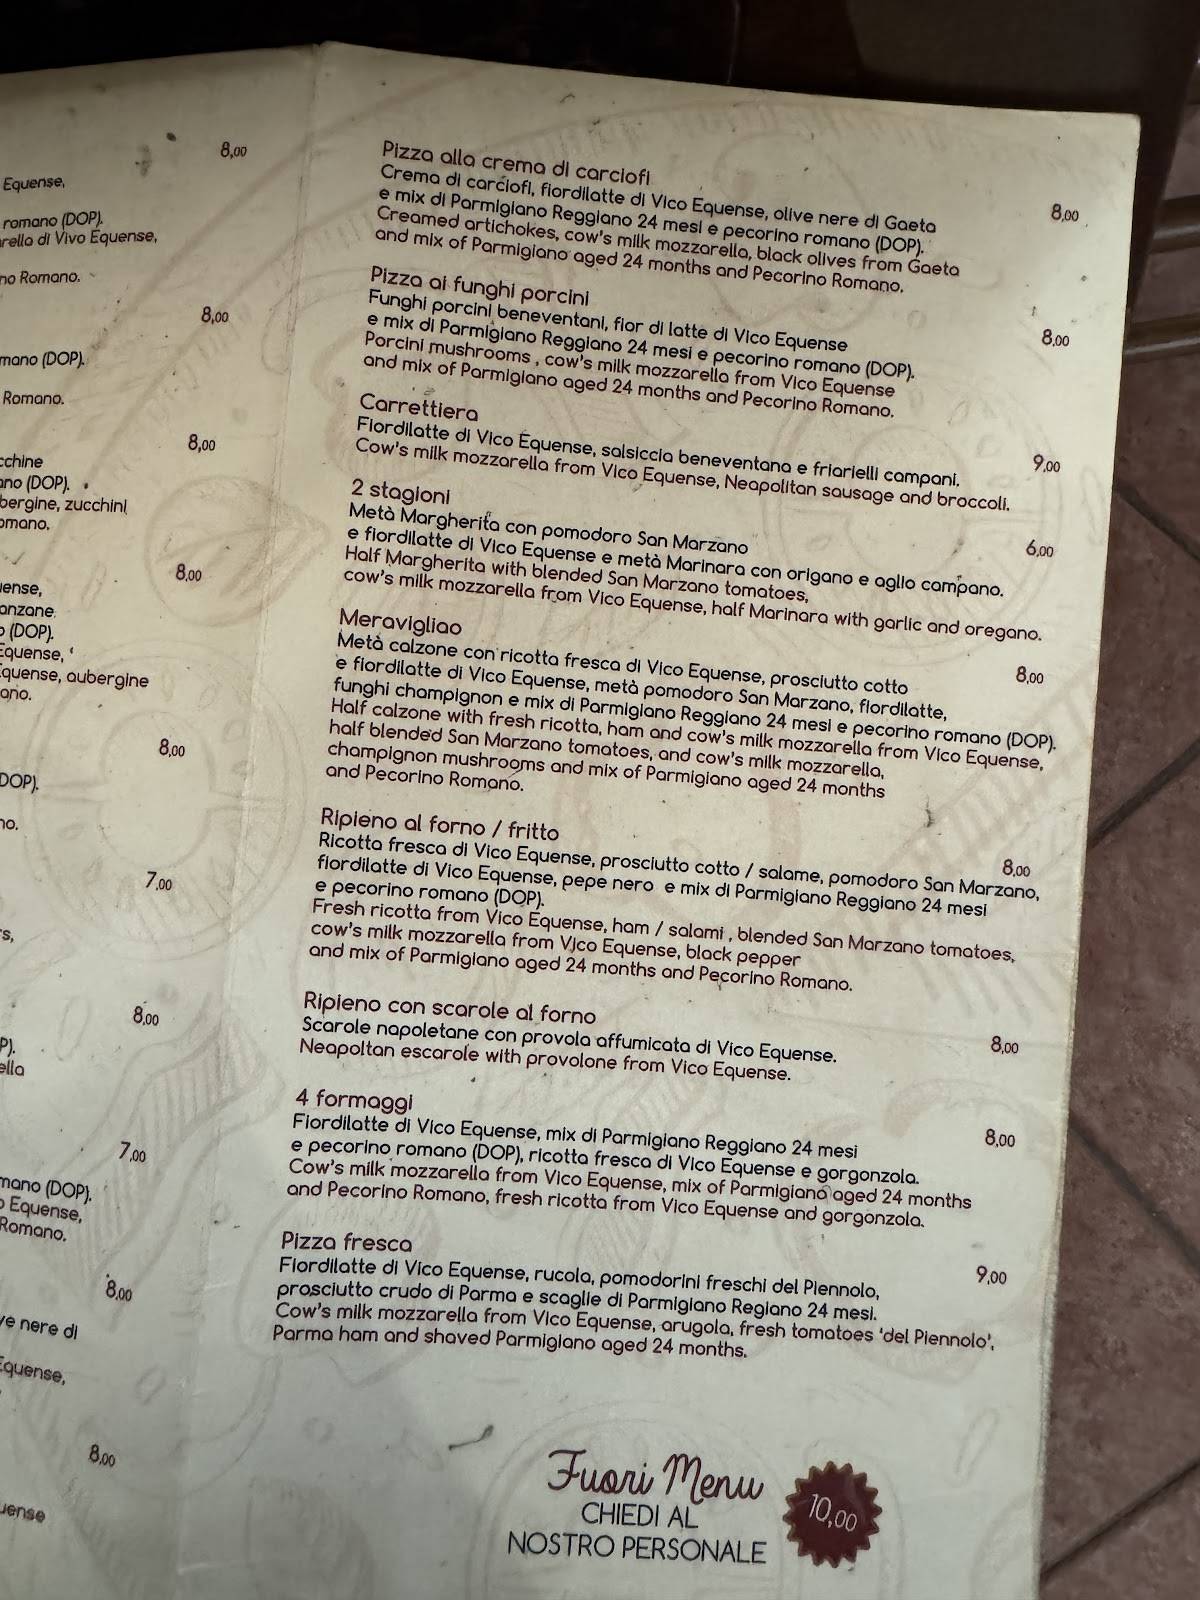 8,00
Equense,
romano (DOP).
rella di Vivo Equense,
no Romano.
8,00
mano (DOP).
Romano.
8,00
cchine
ano (DOP).
bergine, zucchini
omano.
8,00
uense,
anzane
o (DOP).
Equense,
Equense, aubergine
ano.
8,00
DOP).
no.
7,00
rs,
8,00
P).
ella
7,00
mano (DOP).
o Equense,
Romano.
8,00
ve nere di
Equense,
8,00
uense
Pizza alla crema di carciofi
Crema di carciofi, fiordilatte di Vico Equense, olive nere di Gaeta 8,00
e mix di Parmigiano Reggiano 24 mesi e pecorino romano (DOP).
Creamed artichokes, cow's milk mozzarella, black olives from Gaeta
and mix of Parmigiano aged 24 months and Pecorino Romano.
Pizza ai funghi porcini
Funghi porcini beneventani, fior di latte di Vico Equense 8,00
e mix di Parmigiano Reggiano 24 mesi e pecorino romano (DOP).
Porcini mushrooms , cow's milk mozzarella from Vico Equense
and mix of Parmigiano aged 24 months and Pecorino Romano.
Carrettiera
Fiordilatte di Vico Equense, salsiccia beneventana e friarielli campani. 9,00
Cow's milk mozzarella from Vico Equense, Neapolitan sausage and broccoli.
2 stagioni
Metà Margherita con pomodoro San Marzano 6,00
e fiordilatte di Vico Equense e metà Marinara con origano e aglio campano.
Half Margherita with blended San Marzano tomatoes,
cow's milk mozzarella from Vico Equense, half Marinara with garlic and oregano.
Meravigliao
Metà calzone con ricotta fresca di Vico Equense, prosciutto cotto 8,00
e fiordilatte di Vico Equense, metà pomodoro San Marzano, fiordilatte,
funghi champignon e mix di Parmigiano Reggiano 24 mesi e pecorino romano (DOP).
Half calzone with fresh ricotta, ham and cow's milk mozzarella from Vico Equense,
half blended San Marzano tomatoes, and cow's milk mozzarella,
champignon mushrooms and mix of Parmigiano aged 24 months
and Pecorino Romano.
Ripieno al forno / fritto
Ricotta fresca di Vico Equense, prosciutto cotto / salame, pomodoro San Marzano, 8,00
fiordilatte di Vico Equense, pepe nero e mix di Parmigiano Reggiano 24 mesi
e pecorino romano (DOP).
Fresh ricotta from Vico Equense, ham / salami , blended San Marzano tomatoes,
cow's milk mozzarella from Vico Equense, black pepper
and mix of Parmigiano aged 24 months and Pecorino Romano.
Ripieno con scarole al forno
Scarole napoletane con provola affumicata di Vico Equense. 8,00
Neapoltan escarole with provolone from Vico Equense.
4 formaggi
Fiordilatte di Vico Equense, mix di Parmigiano Reggiano 24 mesi 8,00
e pecorino romano (DOP), ricotta fresca di Vico Equense e gorgonzola.
Cow's milk mozzarella from Vico Equense, mix of Parmigiano aged 24 months
and Pecorino Romano, fresh ricotta from Vico Equense and gorgonzola.
Pizza fresca
Fiordilatte di Vico Equense, rucola, pomodorini freschi del Piennolo, 9,00
prosciutto crudo di Parma e scaglie di Parmigiano Regiano 24 mesi.
Cow's milk mozzarella from Vico Equense, arugola, fresh tomatoes 'del Piennolo',
Parma ham and shaved Parmigiano aged 24 months.
Fuori Menu
CHIEDI AL
NOSTRO PERSONALE
10,00